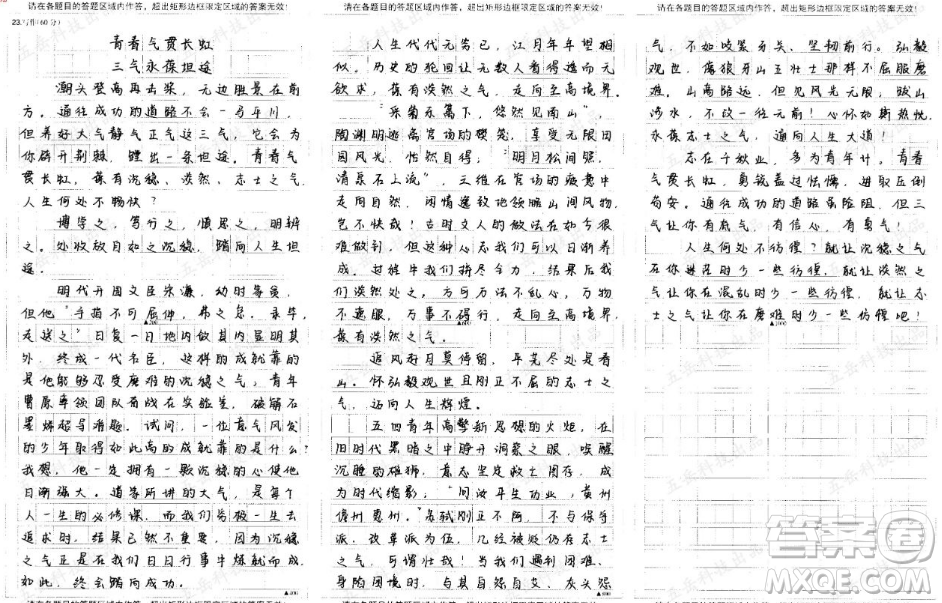 请在各题目的答题区域内作答，超出矩形边框限定区域的答案无效！
23.写作(60分)
青春气贯长虹
三气永葆坦途
潮头登高再击桨，无边胜景在前
方。通往成功的道路不会一马平川，
但养好大气静气正气这三气，它会为
你辟开荆棘，蹚出一条坦途。青春气
贯长虹，葆有沉稳、淡然、志士之气，
人生何处不畅快？
博学之，笃行之，慎思之，明辨
之。处收放自如之沉稳，踏向人生坦
途。
明代开国文臣宋濂，幼时家贫，
但他“手指不可屈伸，弗之怠。录毕，
走送之”日复一日地内敛其内显明其
外，终成一代名臣，这样的成就靠的
是他能够忍受磨难的沉稳之气；青年
曹原率领团队奋战在实验室，破解石
墨烯超导难题。试问，一位意气风发
的少年取得如此高的成就靠的是什么？
我想，他一定拥有一颗沉稳的心使他
日渐强大。道客所讲的大气，是每个
人一生的必修课，而我们穷极一生去
追求时，结果已然不同，那么，沉稳
之气正是在我们日日行事中炼就而成，
如此，终会踏向成功。
▲400
请在各题目的答题区域内作答，超出矩形边框限定区域的答案无效！
请在各题目的答题区域内作答，超出矩形边框限定区域的答案无效！
人生代代无穷已，江月年年望相
似。历史的轮回让无数人看得透而无
欲求，葆有淡然之气，走向至高境界。
“采菊东篱下，悠然见南山”，
陶渊明逃离官场的樊笼，享受无限田
园风光，怡然自得；“明月松间照，
清泉石上流”，王维在官场的疲惫中
走向自然，闲情逸致地领略山间风物，
岂不快哉！古时文人的做法在如今很
难做到，但这种心态我们可以日渐养
成。过程中我们拼尽全力，结果后我
们淡然处之，方可万法不乱心，万物
不遮眼，万事不碍行，走向至高境界，
葆有淡然之气。
追风赶月莫停留，平芜尽处是春
山。怀弘毅观世且刚正不屈的志士之
气，迈向人生辉煌。
五四青年高擎新思想的火炬，在
旧时代黑暗之中睁开洞察之眼，唤醒
沉睡的雄狮，意志坚定救亡图存，成
为时代缩影；“问汝平生功业，黄州
儋州惠州。”苏轼刚正不阿，不与保守
派、改革派为伍，几经被贬仍在志士
之气，可谓壮哉！当我们遇到困难、
身陷困境时，与其自怨自艾、灰头丧
▲800
请在各题目的答题区域内作答，超出矩形边框限定区域的答案无效！
请在各题目的答题区域内作答，超出矩形边框限定区域的答案无效！
气，不如咬紧牙关、坚韧前行。弘毅
观世，像狼牙山五壮士那样不屈服磨
难。山高路远，但见风光无限，跋山
涉水，不改一往无前！心怀如斯热忱，
永葆志士之气，通向人生大道！
志在千秋业，多为青年计。青春
气贯长虹，勇锐盖过怯懦，进取压倒
苟安。通往成功的道路虽险阻，但三
气让你有底气，有信心，有勇气！
人生何处不彷徨？就让沉稳之气
在你进军时少一些彷徨，就让淡然之
气让你在混乱时少一些彷徨，就让志
士之气让你在磨难时少一些彷徨吧！
▲1000
答案圈
MXQE.COM